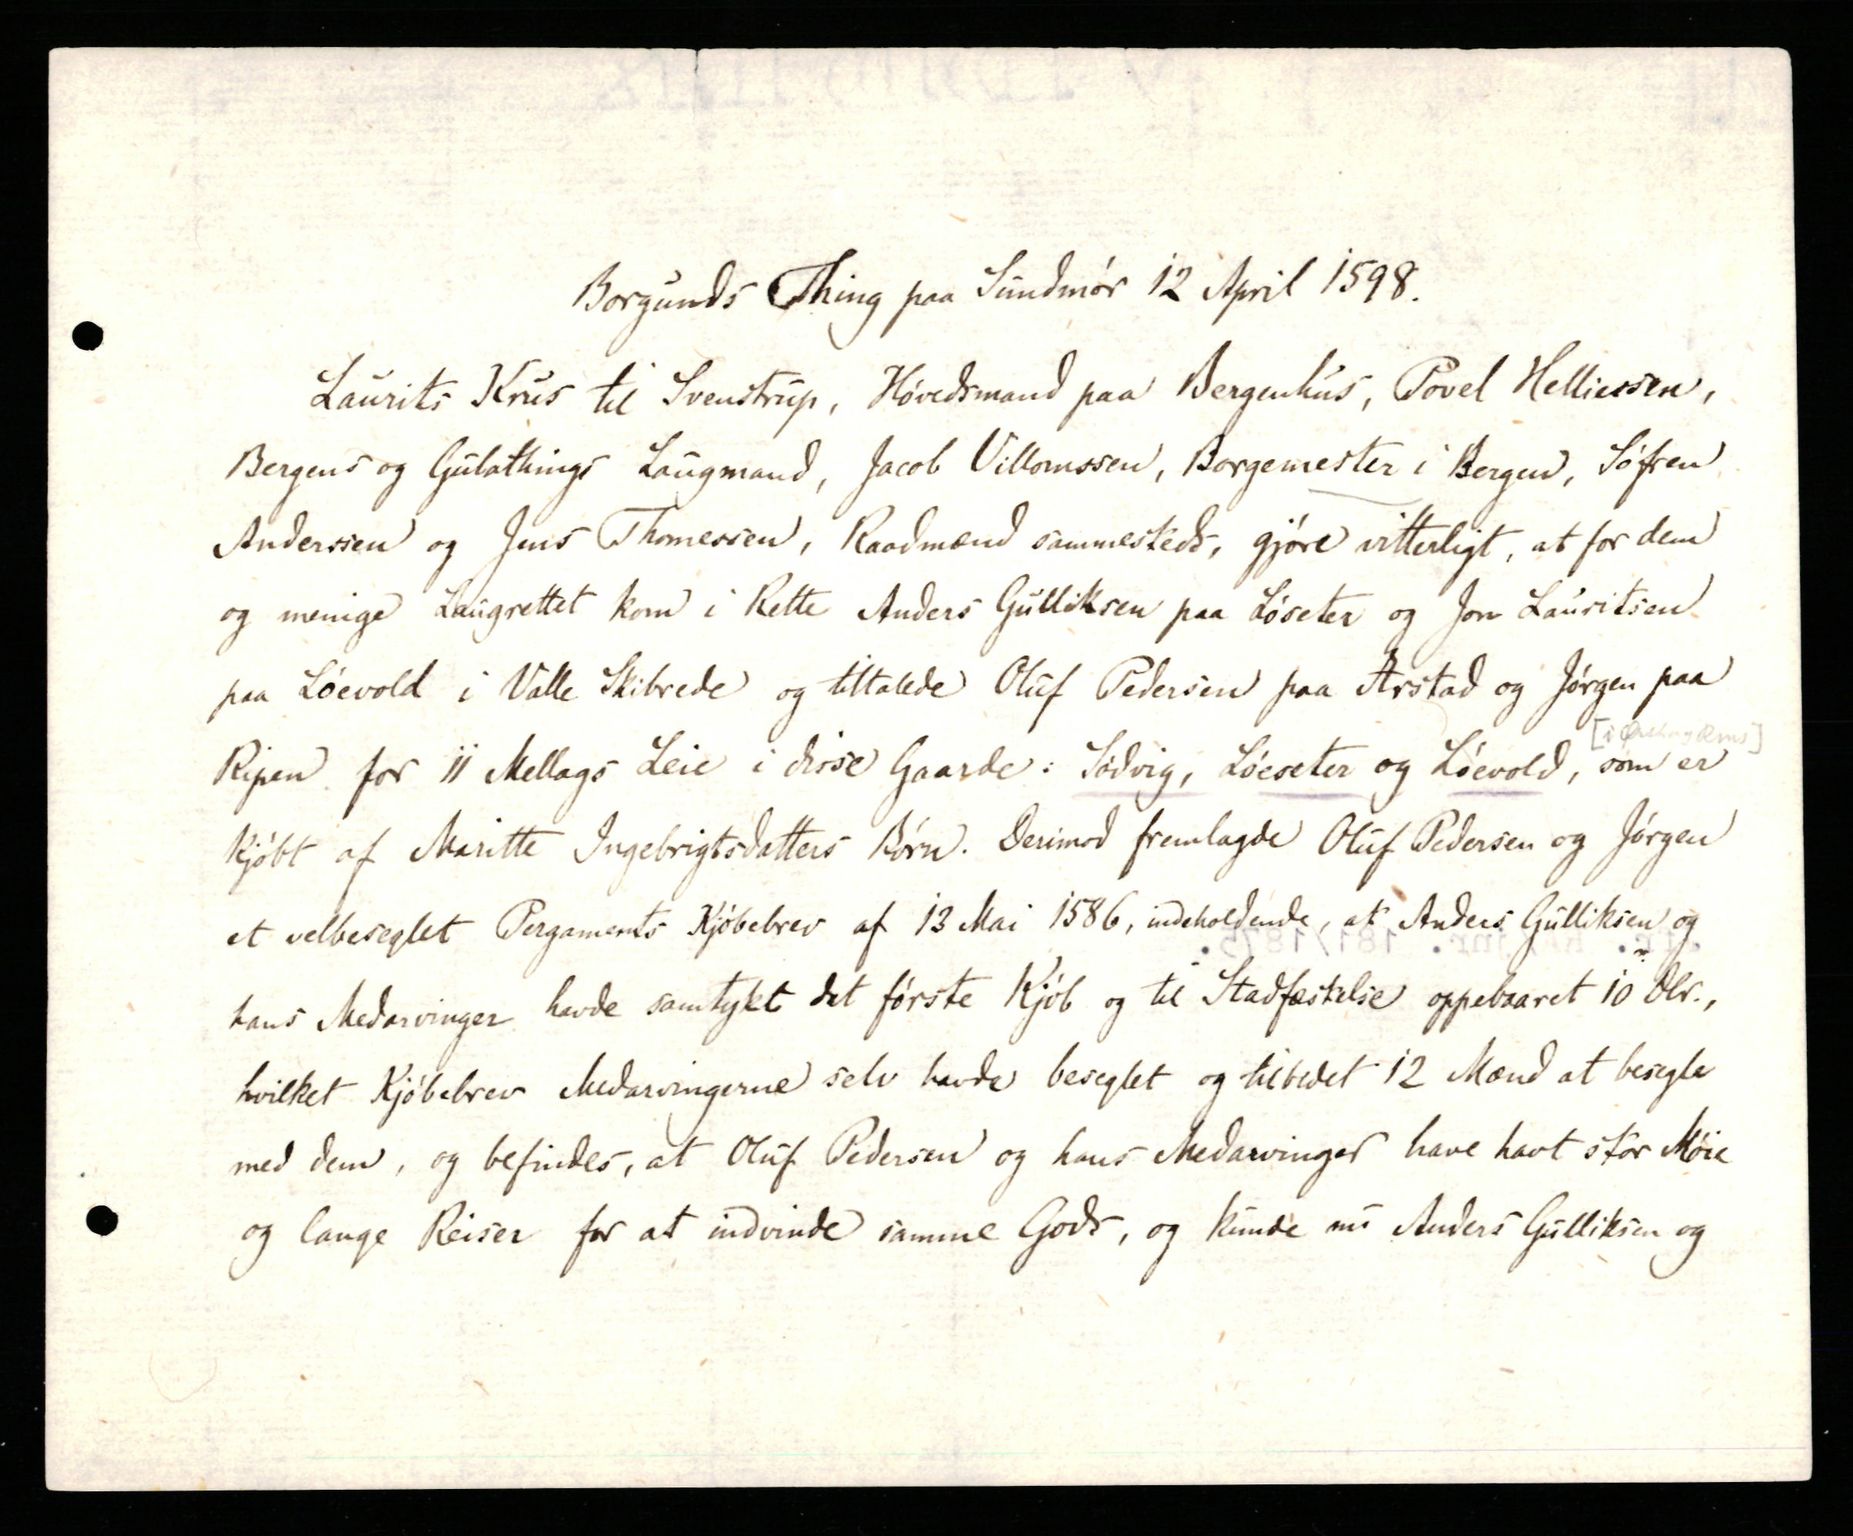 Borgunds Thing paa Sundmør 12 April 1598.
Laurits Krus til Svenstrup, Høvedsmand paa Bergenhus, Povel Helliessen,
Bergens og Gulathings Laugmand, Jacob Villomssen, Borgemester i Bergen, Søfren
Anderssen og Jens Thomessen, Raadmænd sammesteds, gjøre vitterligt, at for dem
og menige Laugrettet kom i Rette Anders Gulliksen paa Løseter og Jon Lauritsen
paa Løevold i Valle Skibrede og tiltalede Oluf Pedersen paa Arstad og Jørgen paa
Ripen for 11 Mellags Leie i disse Gaarde: Sødvig, Løeseter og Løevold, som er
kjøbt af Maritte Ingebrigtsdatters Børn. Derimod fremlagde Oluf Pedersen og Jørgen
et velbeseglet Pergaments Kjøbebrev af 13 Mai 1586, indeholdende, at Anders Gulliksen og
hans Medarvinger havde samtykt det første Kjøb og til Stadfæstelse oppebaaret 10 Dlr.,
hvilket Kjøbebrev Medarvingerne selv havde beseglet og tilbedet 12 Mænd at besegle
med dem, og befindes, at Oluf Pedersen og hans Medarvinger have havt stor Møie
og lange Reiser for at indvinde samme Gods, og kunde nu Anders Gulliksen og